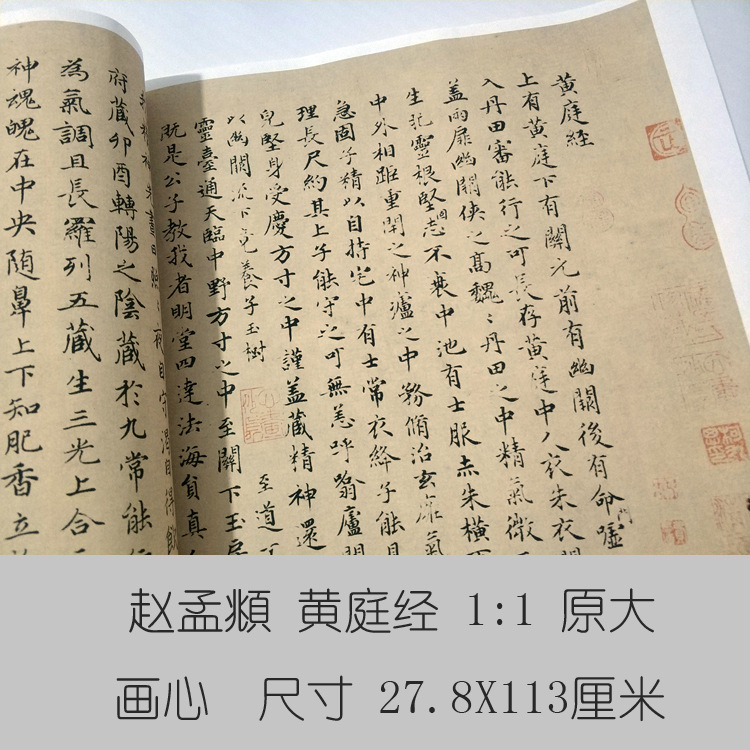 黄庭经
上有黄庭下有關元前有幽闕後有命門噓
入丹田審能行之可長存黄庭中人衣朱衣
盖兩扉幽關俠之高魏〻丹田之中精氣微
生牝靈根堅志不衰中池有士服赤朱橫
中外相距重閉之神廬之中務脩治玄雍氣
急固子精以自持宅中有士常衣絳子能見
理長尺約其上子能守之可無恙呼噏廬間
皃堅身受慶方寸之中謹盖藏精神還
以幽關流下竟養子玉樹 至道
靈臺通天臨中野方寸之中至關下玉房
既是公子教我者明堂四達法海貟真
府藏卯酉轉陽之陰藏於九常能行
為氣調且長羅列五藏生三光上合
神魂魄在中央随鼻上下知肥香立
赵孟頫 黄庭经 1:1 原大
画心 尺寸 27.8X113厘米